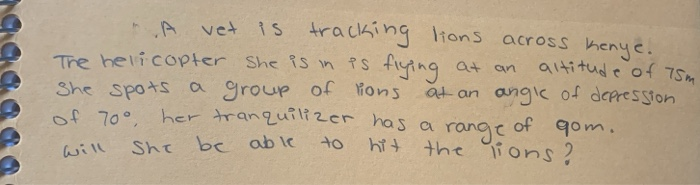 A vet is tracking lions across kenye.
The helicopter she is in is flying at an altitude of 75m
She spots a group of lions at an angle of depression
of 70°, her tranquilizer has a range of 90m.
will she be able to hit the lions?